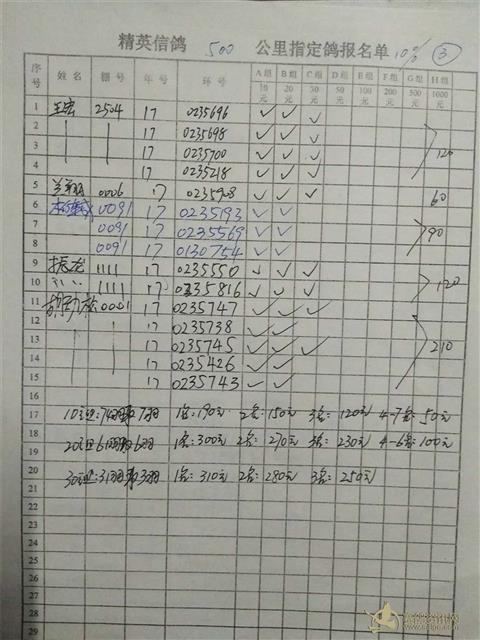 精英信鸽 500 公里指定鸽报名单 10% ③
序号 姓名 棚号 年号 环号 A组10元 B组20元 C组30元 D组50元 E组100元 F组200元 G组500元 H组1000元
1 王宏 2504 17 0235696 ✓ ✓ ✓
2 17 0235698 ✓ ✓ ✓
3 17 0235700 ✓ ✓ ✓ 120
4 17 0235218 ✓ ✓ ✓
5 兰翔 0006 17 0235908 ✓ ✓ ✓ 60
6 0091 17 0235193 ✓ ✓
7 0091 17 0235569 ✓ ✓ 90
8 0091 17 0130754 ✓ ✓
9 振龙 1111 17 0235550 ✓ ✓ ✓
10 〃 〃 1111 17 0235816 ✓ ✓ ✓ 120
11 0001 17 0235747 ✓ ✓ ✓
12 17 0235738 ✓ ✓
13 17 0235745 ✓ ✓ ✓ 210
14 17 0235426 ✓ ✓
15 17 0235743 ✓ ✓
16
17 10元组:74羽取7羽 1名:190元 2名:150元 3名:120元 4-7名:50元
18 20元组:61羽取6羽 1名:300元 2名:270元 3名:230元 4-6名:100元
19
20 30元组:31羽取3羽 1名:310元 2名:280元 3名:250元
21
22
23
24
25
26
27
28
29